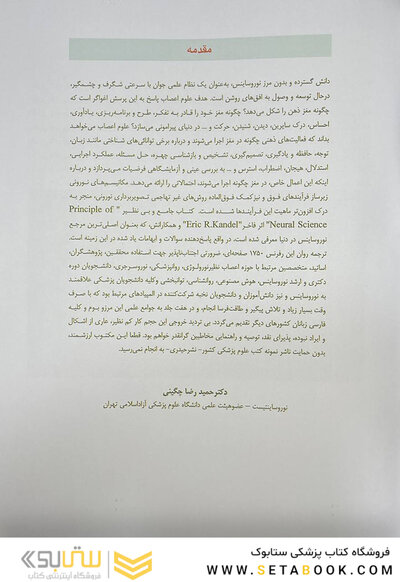 مقدمه
دانش گسترده و بدون مرز نوروساینس، به‌عنوان یک نظام علمی جوان با سرعتی شگرف و چشمگیر،
درحال توسعه و وصول به افق‌های روشن است. هدف علوم اعصاب پاسخ به این پرسش اغواگر است که
چگونه مغز ذهن را شکل می‌دهد؟ چگونه مغز خود را قادر به تفکر، طرح و برنامه‌ریزی، یادآوری،
احساس، درک سایرین، دیدن، شنیدن، حرکت و ... در دنیای پیرامونی می‌سازد؟ علوم اعصاب می‌خواهد
بداند که فعالیت‌های ذهنی چگونه در مغز اجرا می‌شوند و درباره برخی توانائی‌های شناختی مانند زبان،
توجه، حافظه و یادگیری، تصمیم‌گیری، تشخیص و بازشناسی چهره، حل مسئله، عملکرد اجرایی،
استدلال، هیجان، اضطراب، استرس و ... به بررسی عینی و آزمایشگاهی فرضیات می‌پردازد و درباره
اینکه این اعمال خاص، در مغز چگونه اجرا می‌شوند، احتمالاتی را ارائه می‌دهد. مکانیسم‌های نورونی
زیرساز فرآیندهای فوق و نیز کمک فوق‌العاده روش‌های غیر تهاجمی تصویربرداری نورونی، منجر به
درک افزون‌تر ماهیت این فرآیندها شده است. کتاب جامع و بی نظیر " Principle of
Neural Science" اثر فاخر "Eric R.Kandel" و همکارانش، که به‌عنوان اصلی‌ترین مرجع
نوروساینس در دنیا معرفی شده است، در واقع پاسخ‌دهنده سوالات و ابهامات یاد شده در این زمینه است.
ترجمه روان این رفرنس ۱۷۵۰ صفحه‌ای، ضرورتی اجتناب‌ناپذیر جهت استفاده محققین، پژوهشگران،
اساتید متخصصین مرتبط با حوزه اعصاب نظیر نورولوژی، روانپزشکی، نوروسرجری، دانشجویان دوره
دکتری و ارشد نوروساینس، هوش مصنوعی، روانشناسی، توانبخشی و کلیه دانشجویان پزشکی علاقمند
به نوروساینس و نیز دانش‌آموزان و دانشجویان نخبه شرکت‌کننده در المپیادهای مرتبط بود که با صرف
وقت بسیار زیاد و تلاش پیگیر و طاقت‌فرسا انجام، و در هفت جلد به جوامع علمی این مرزو بوم و کلیه
فارسی زبانان کشورهای دیگر تقدیم می‌گردد. بی تردید خروجی این حجم کار کم نظیر، عاری از اشکال
و ایراد نبوده، پذیرای نقد، توصیه و راهنمایی مخاطبین گرانقدر خواهم بود. قطعا این مکتوب ارزشمند،
بدون حمایت ناشر نمونه کتب علوم پزشکی کشور- نشرحیدری- به انجام نمی‌رسید.
دکترحمید رضا چگینی
نوروساینتیست – عضوهیئت علمی دانشگاه علوم پزشکی آزاداسلامی تهران
ستابوک
فروشگاه اینترنتی کتاب
فروشگاه کتاب پزشکی ستابوک
WWW.SETABOOK.COM